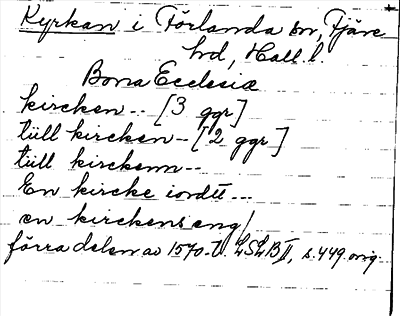 Kyrkan i Förlanda sn, Fjäre
hd, Hall. l.
Bona Ecclesiæ
kircken -- [3 ggr]
tüll kircken -- [2 ggr]
tüll kirckenn --
En kircke iordtt ---
en kirckens eng/
förra delen av 1570-t. LSLB II, s. 449 orig.